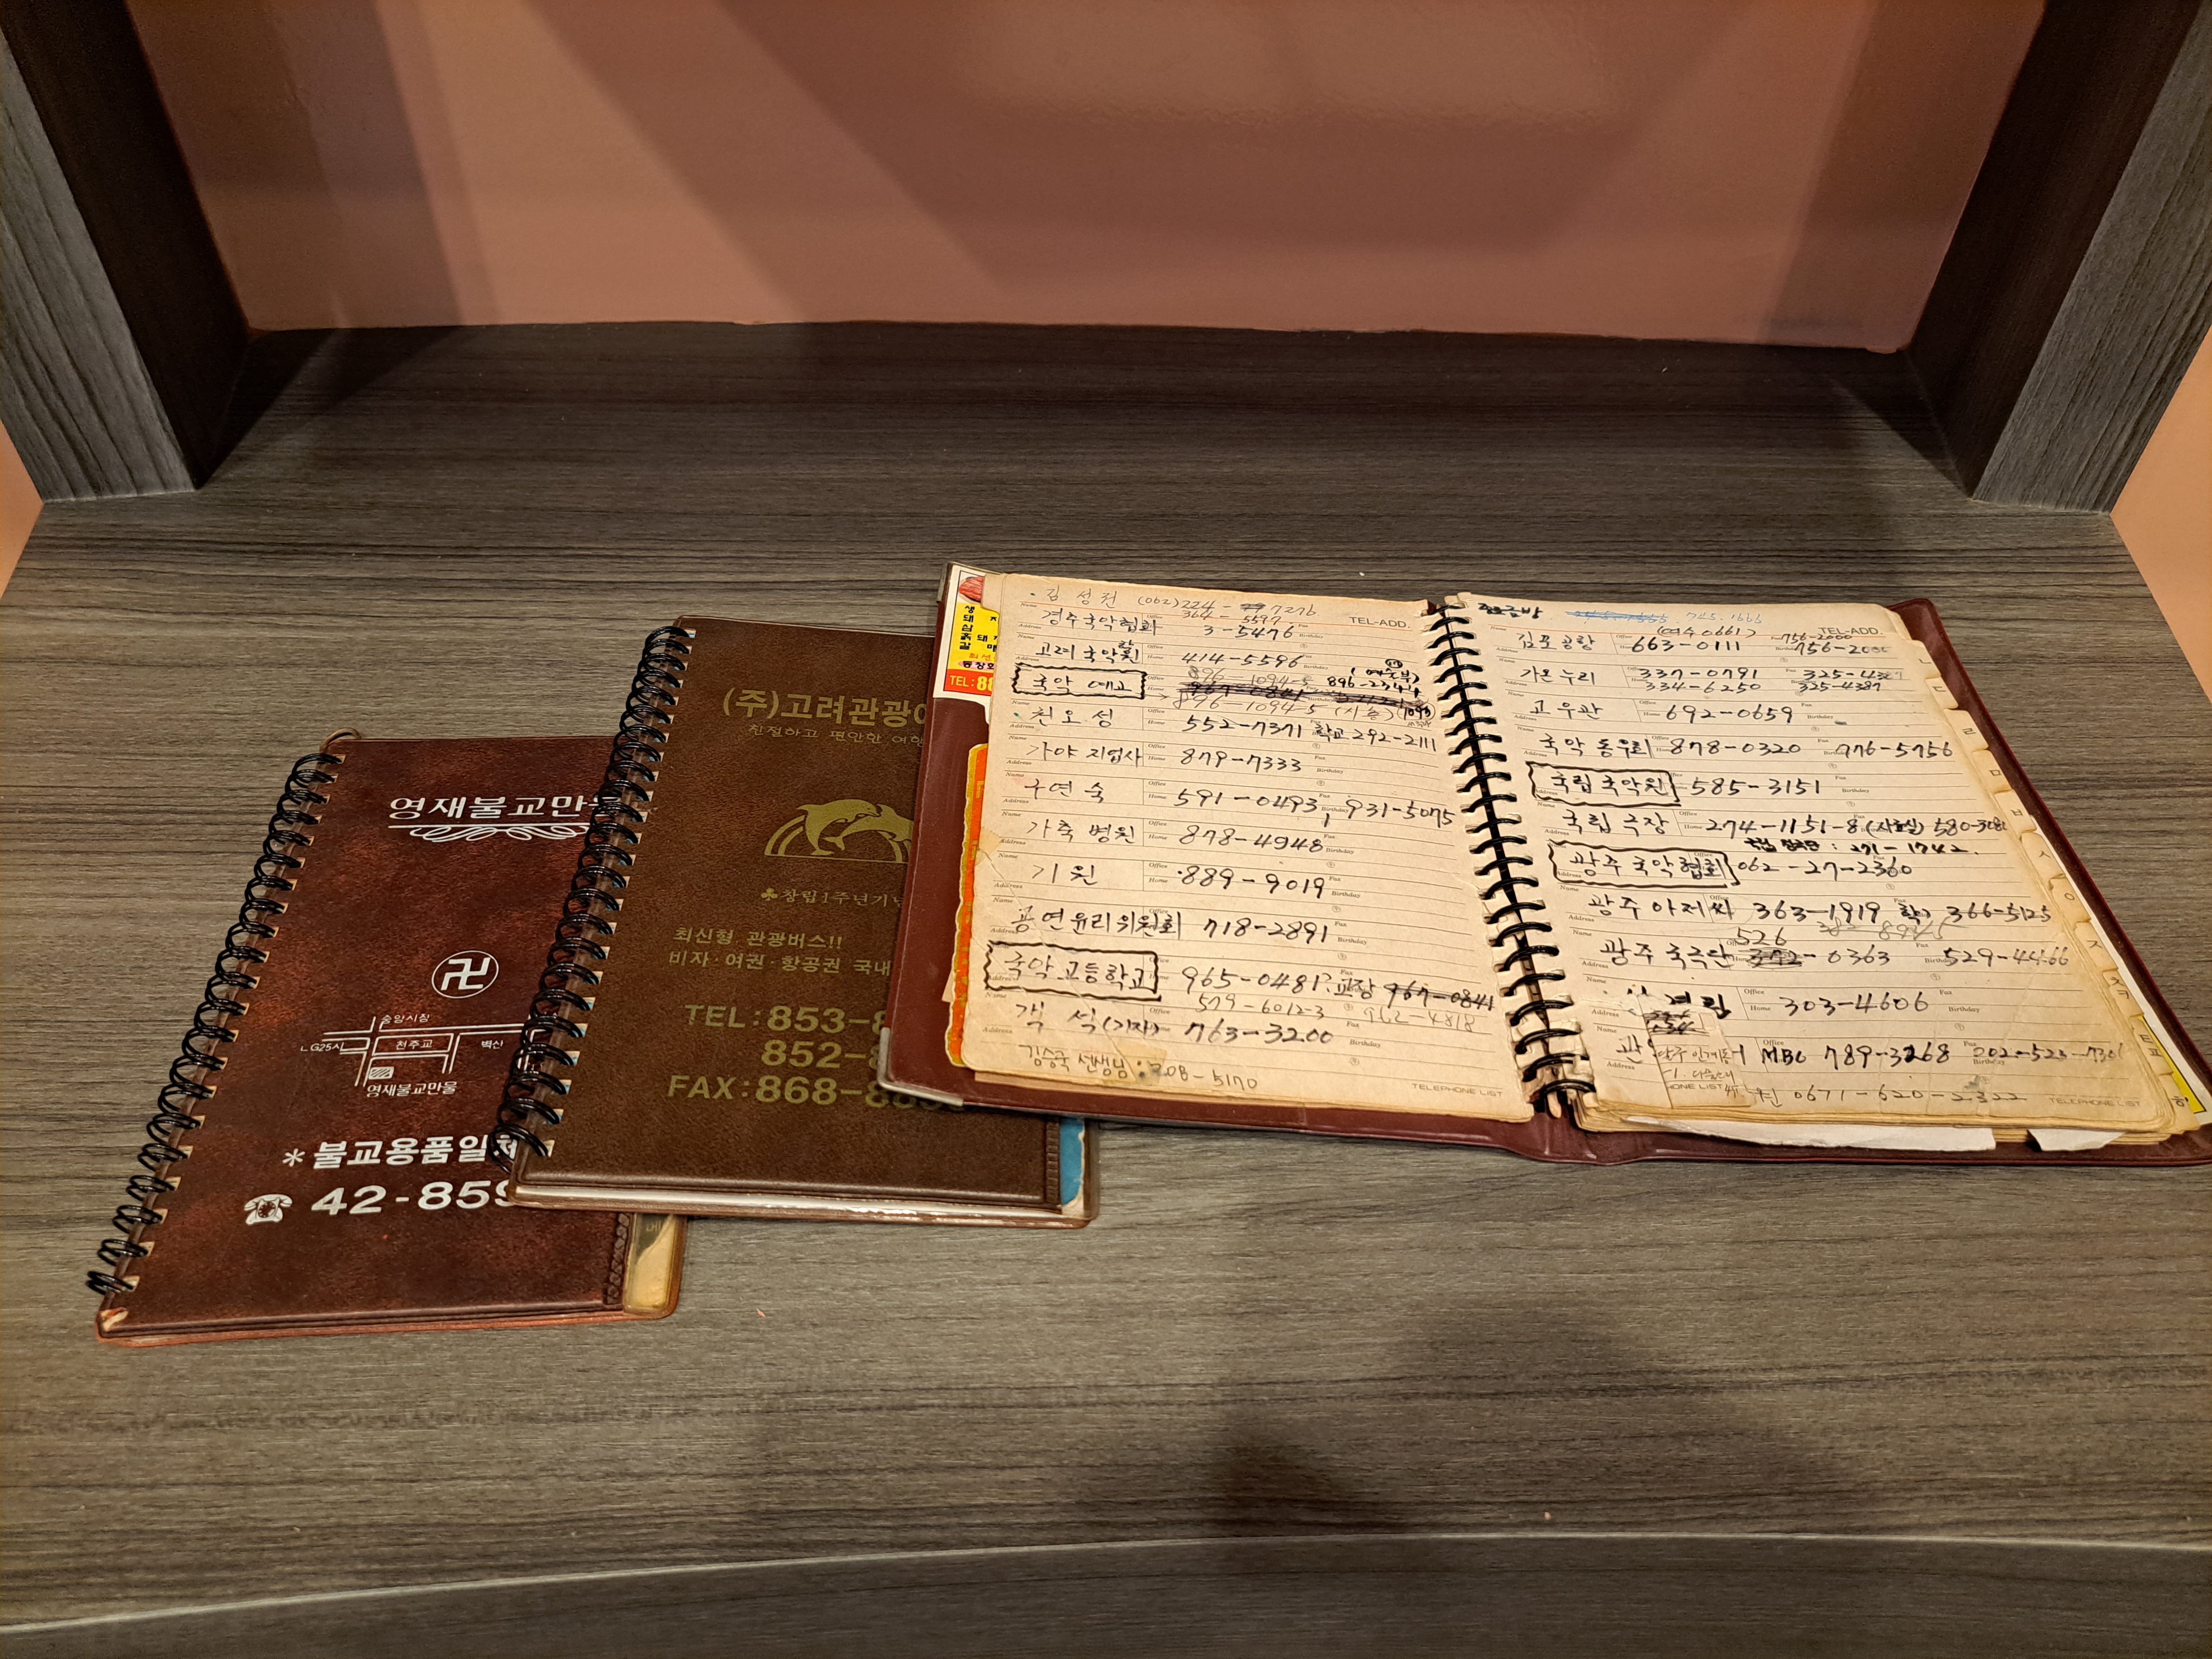 영재불교만물
卍
중앙시장
LG25시
천주교
벽신
영재불교만물
*불교용품일체
42-859
(주)고려관광
친절하고 편안한 여행
♣창립1주년기념
최신형 관광버스!!
비자·여권·항공권 국내
TEL:853-8
852-8
FAX:868-88
생
돼지
삼
갈매
TEL:88
김성권 (062)224- 7276
364-5597
경주국악협회 3-5476
TEL-ADD.
고려국악원 414-5596
국악예고 896-1094-5 896-2344
896-1094-5
천오성 552-7371 학교 292-2111
가야지업사 879-7333
구연숙 591-0493, 931-5075
가축병원 878-4948
기원 889-9019
공연윤리위원회 718-2891
국악고등학교 965-0481 교장 967-0841
579-6012-3 962-4818
객석(기자) 763-3200
김승국 선생님: 208-5170
TELEPHONE LIST
금방 745.1666
(여수 0661) 756-2000
TEL-ADD.
김포공항 663-0111 756-2000
가온누리 337-0791 325-4387
334-6250 325-4387
고우관 692-0659
국악동우회 878-0320 776-5756
국립국악원 585-3151
국립극장 274-1151-8 580-3081
271-1742
광주국악협회 062-27-2360
광주아저씨 363-1919 학교 366-5125
526
광주국극단 372-0363 529-4466
303-4606
MBC 789-3268 202-523-7301
0671-620-2322
TELEPHONE LIST
ㄴ
ㄷ
ㄹ
ㅁ
ㅂ
ㅅ
ㅇ
ㅈ
ㅊㅋ
ㅌㅍ
ㅎ